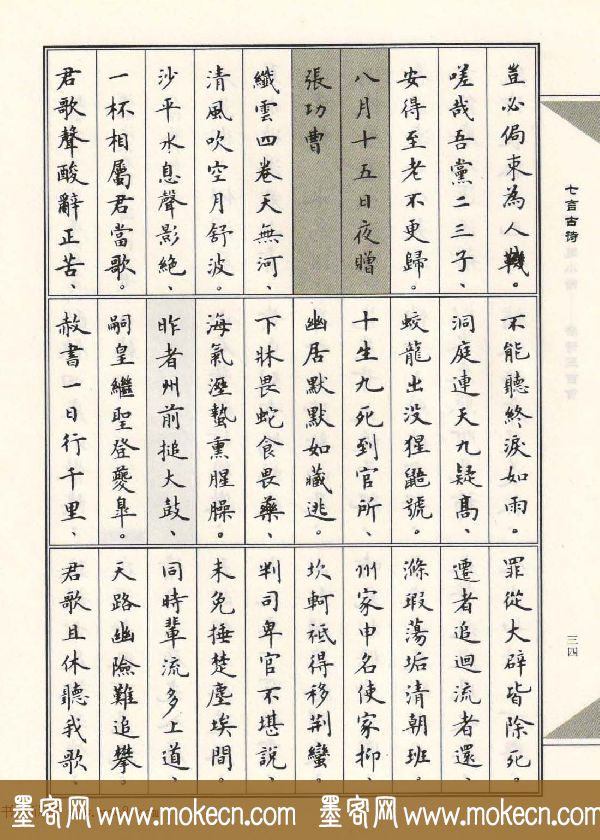 豈必侷束為人鞿。
嗟哉吾黨二三子、
安得至老不更歸。
八月十五日夜贈
張功曹
纖雲四卷天無河、
清風吹空月舒波。
沙平水息聲影絕、
一杯相屬君當歌。
君歌聲酸辭正苦、
不能聽終淚如雨。
洞庭連天九疑高、
蛟龍出没猩鼯號。
十生九死到官所、
幽居默默如藏逃。
下牀畏蛇食畏藥、
海氣溼蟄熏腥臊。
昨者州前搥大鼓、
嗣皇繼聖登夔皐。
赦書一日行千里、
罪從大辟皆除死。
遷者追迴流者還、
滌瑕蕩垢清朝班。
州家申名使家抑、
坎軻衹得移荆蠻。
判司卑官不堪說、
未免捶楚塵埃間。
同時輩流多上道、
天路幽險難追攀。
君歌且休聽我歌、
七言古詩
三四
墨客网 www.mokecn.com 墨客网 www.mokecn.com